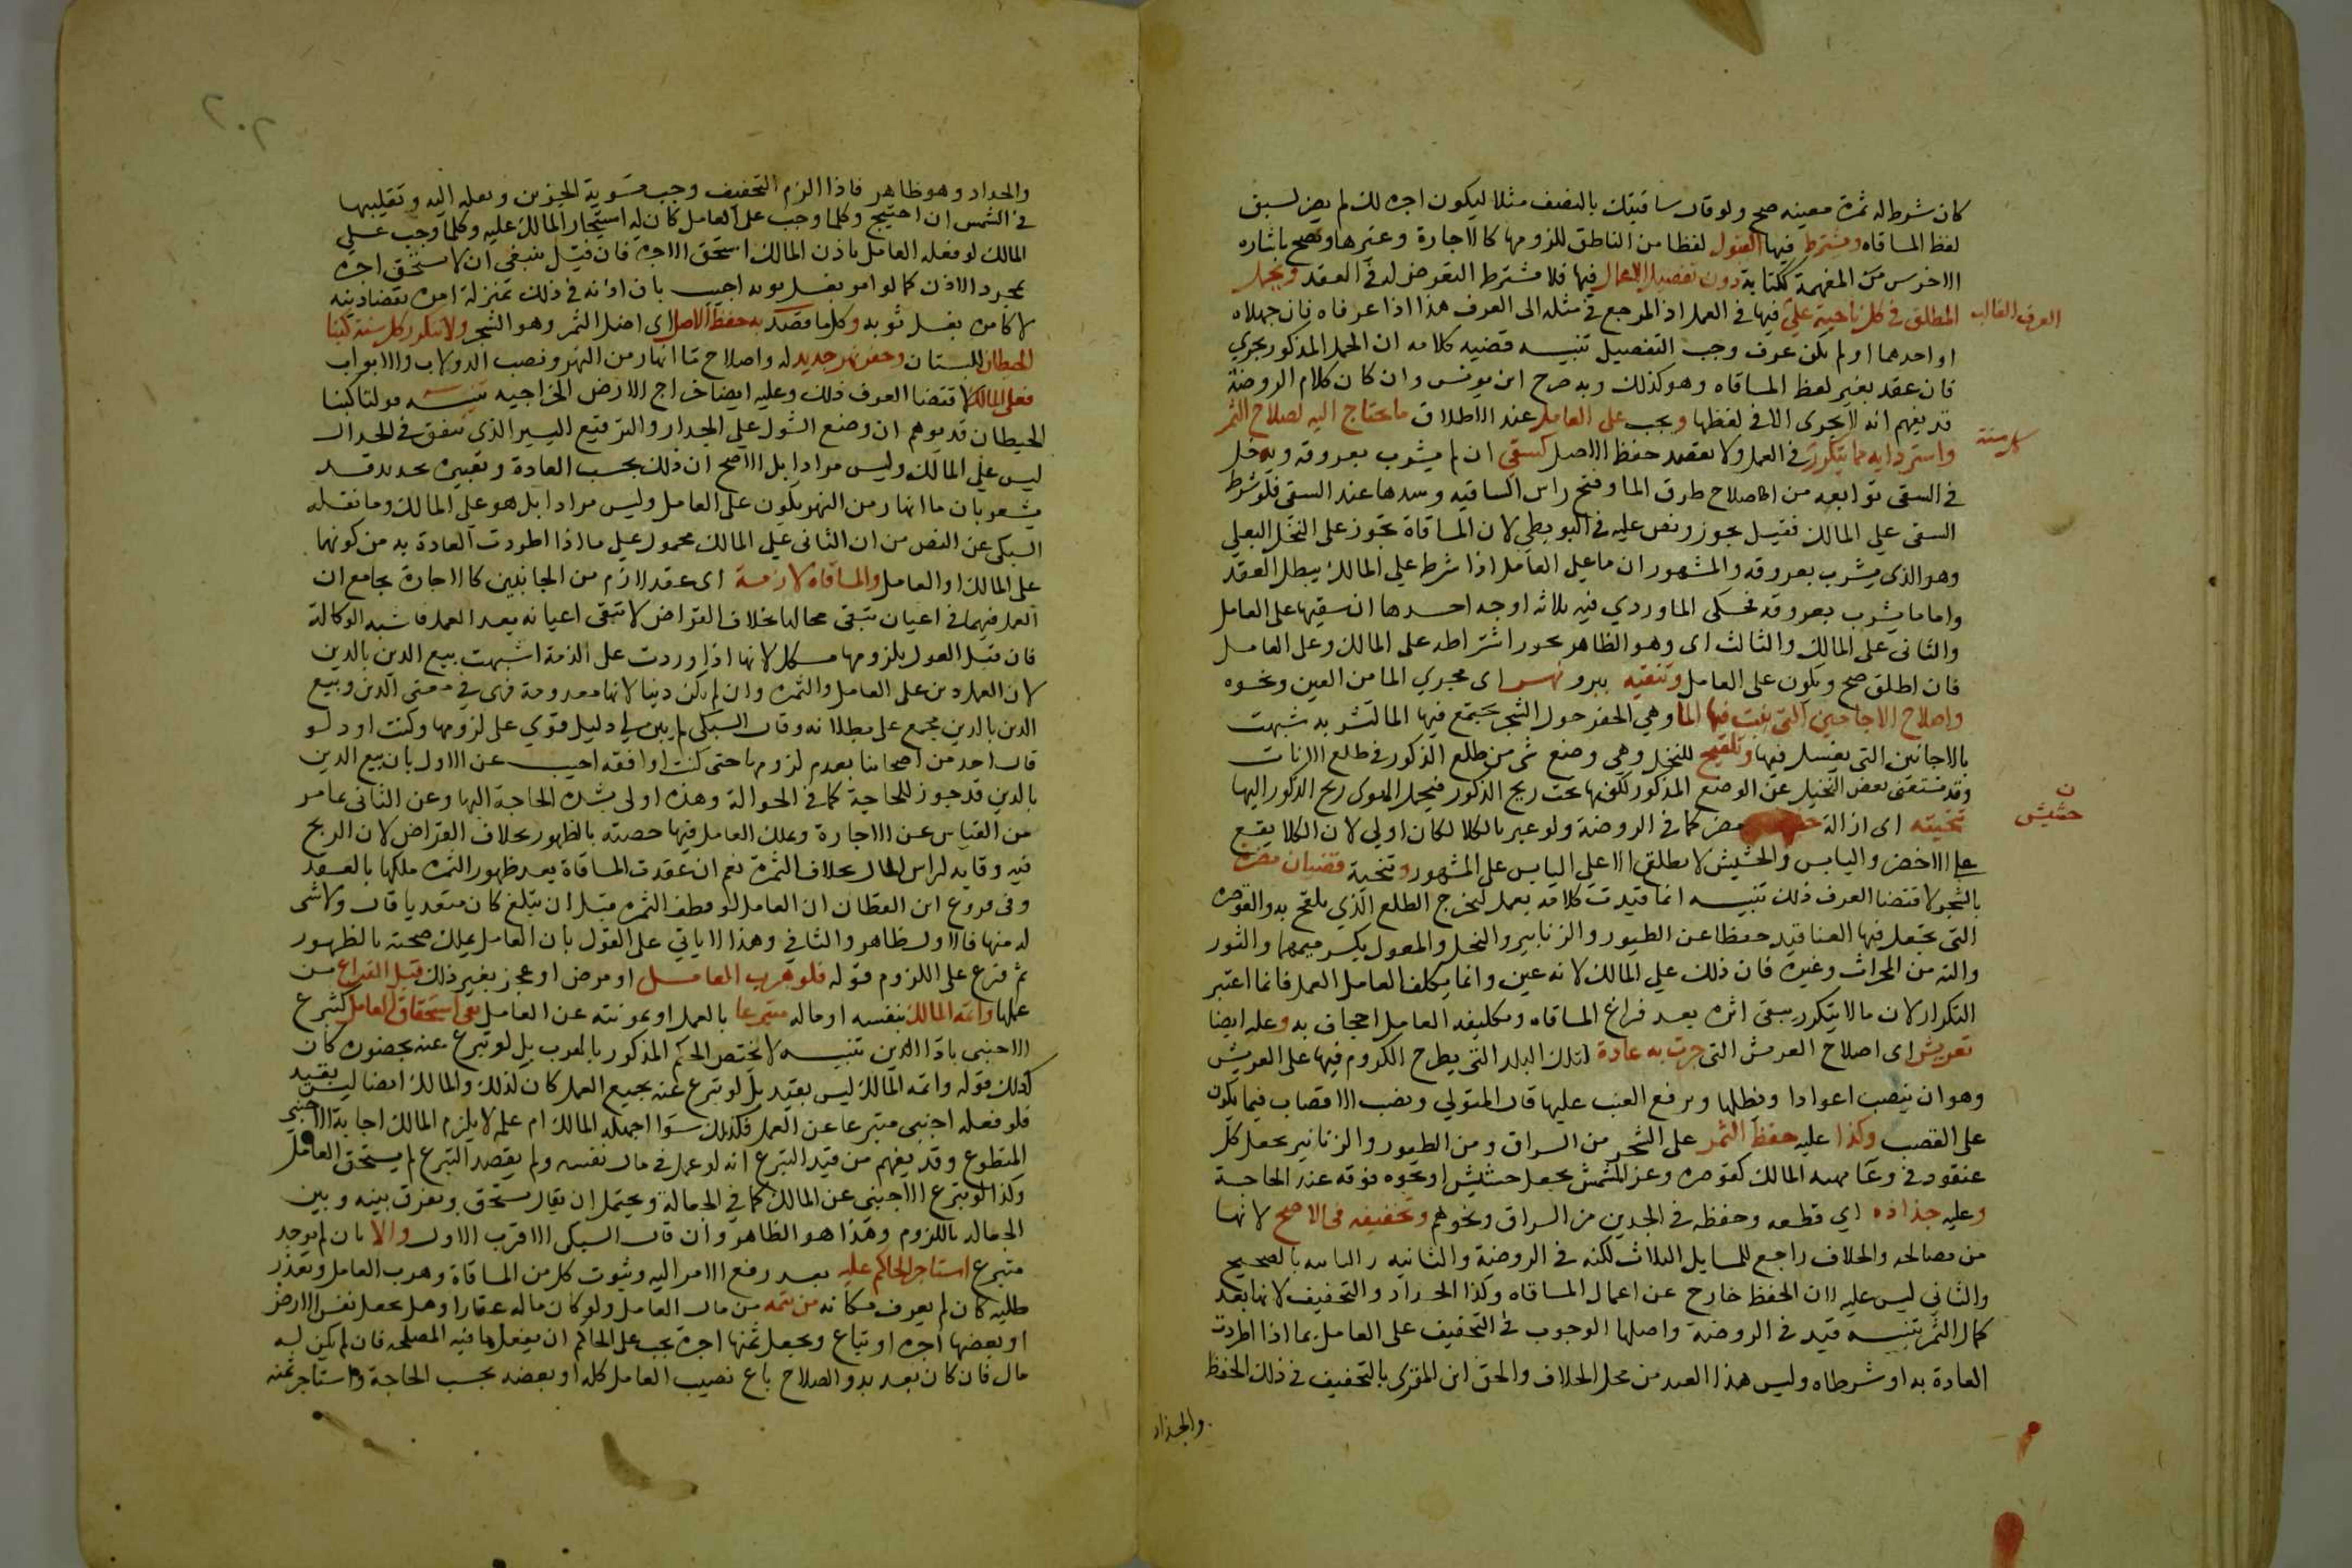 كان شرط له ثمرة معينه صح ولو قال ساقيتك بالنصف مثلا ليكون اجره لك لم يصح لسبق
لفظ المساقاه ويشترط فيها القبول لفظا من الناطق للزومها كالاجارة وغيرها وتصح باشاره
الاخرس المفهمة ككتابة دون تفصيل الاعمال فيها فلا يشترط التعرض له في العقد ويحمل
المطلق في كل ناحية على فيها في العمل اذ المرجع في مثله الى العرف هذا اذا عرفاه فان جهلاه
العرف الغالب
او احدهما او لم يكن عرف وجب التفصيل تنبيه قضيه كلامه ان الحمل المذكور يجري
فان عقد بغير لفظ المساقاه وهو كذلك وبه صرح ابن يونس وان كان كلام الروضة
قد يفهم انه لا يجرى الا في لفظها ويجب على العامل عند الاطلاق ما يحتاج اليه لصلاح الثمر
واستزدايه مما يتكرر في العمل ولا يقصد حفظ الاصل كسقي ان لم يشرب بعروقه ويدخل
كل سنة
في السقى توابعه من اصلاح طرق الما وفتح راس الساقيه وسدها عند السقى فلو شرط
السقى على المالك فقيل يجوز ونص عليه في البويطي لان المساقاة تجوز على النخل البعلي
وهو الذي يشرب بعروقه والمشهور ان ما على العامل اذا شرط على المالك يبطل العقد
واما ما يشرب بعروقه فحكى الماوردي فيه ثلاثه اوجه احدها ان سقيها على العامل
والثانى على المالك والثالث اى وهو الظاهر يجوز اشتراطه على المالك وعلى العامل
فان اطلق صح ويكون على العامل وتنقيه بير ونهر اى مجرى الما من العين ونحوه
واصلاح الاجاجين التي يثبت فيها الما وهي الحفر حول الشجر يجتمع فيها الما لتشربه شبهت
بالاجانين التى يغسل فيها وتلقيح للنخل وهي وضع شي من طلع الذكور في طلع الاناث
وقد يستغنى بعض النخيل عن الوضع المذكور لكونها تحت ريح الذكور فيحمل الهوى ريح الذكور اليها
تنحيته اى ازالة مضر كما في الروضة ولو عبر بالكلا لكان اولى لان الكلا يقع
حشيش
على الاخضر واليابس والحشيش لا يطلق الا على اليابس على المشهور وتنحية قضبان مضرة
بالشجر لاقتضا العرف ذلك تنبيه انما قيدت كلامه بعمل ليخرج الطلع الذي يلقح به والقوصره
التي يجعل فيها العناقيد حفظا عن الطيور والزنابير والنخل والمعول بكسر ميمهما والثور
والته من المحراث وغيره فان ذلك على المالك لانه عين وانما يكلف العامل العمل فانما اعتبر
التكرار لان ما لا يتكرر يبقى اثره بعد فراغ المساقاه وتكليفه العامل اجحاف به وعليه ايضا
تعريش اى اصلاح العريش التى جرت به عادة لتلك البلد التى يطرح الكروم فيها على العريش
وهو ان ينصب اعوادا ويظللها ويرفع العنب عليها قال المتولي ونصب الاقصاب فيما يكون
على القصب وكذا عليه حفظ الثمر على الشجر من السراق ومن الطيور والزنانير بجعل كل
عنقود في وعا يهيه المالك كقوصره وعن المشمش بجعل حشيش او نحوه فوقه عند الحاجة
وعليه جذاذه اي قطعه وحفظه في الجدين من السراق ونحوهم وتجفيفه في الاصح لانها
من مصالحه والخلاف راجع للمسايل الثلاث لكنه في الروضة والثانيه بالصحيح
والثانى ليس عليه لان الحفظ خارج عن اعمال المساقاه وكذا الجداد والتجفيف لانها بعد
كمال الثمر تنبيه قيد في الروضة واصلها الوجوب في التجفيف على العامل بما اذا اطردت
العادة به او شرطاه وليس هذا القيد من محل الخلاف والحق ابن المقرى بالتجفيف في ذلك الحفظ
والجذاد
والجداد وهو ظاهر فاذا الزم التجفيف وجب تسوية الجرين ونقله اليه وتقليبها
في الشمس ان احتيج وكلما وجب على العامل كان له استيجار المالك عليه وكلما وجب على
المالك لو فعله العامل باذن المالك استحق الاجره فان قيل ينبغى ان لا يستحق اجره
بمجرد الاذن كما لو امر بغسل ثوبه اجيب بان اذنه في ذلك بمنزلة امره بقضا دينه
لا كامره بغسل ثوبه وكلما قصد به حفظ الاصل اى اصل الثمر وهو الشجر ولا يتكرر كل سنة كبنا
الحيطان للبستان وحفر نهر جديد له واصلاح ما انهار من النهر ونصب الدولاب والابواب
فعلى المالك لاقتضا العرف ذلك وعليه ايضا خراج الارض الخراجيه تنبيه قولنا كبنا
الحيطان قد يوهم ان وضع الشوك على الجدار والترقيع اليسير الذي يتفق في الجدار
ليس على المالك وليس مرادا بل الاصح ان ذلك بحسب العادة وتعبيره بجديد قد
يشعر بان ما انهار من النهر يكون على العامل وليس مرادا بل هو على المالك وما نقله
السبكى عن النص من ان الثانى على المالك محمول على ما اذا اطردت العادة به من كونهما
على المالك او العامل والمساقاه لازمة اى عقد لازم من الجانبين كالاجارة بجامع ان
العمل فيهما في اعيان تبقى بحالها بخلاف القراض لا تبقى اعيانه بعد العمل فاشبه الوكالة
فان قيل القول بلزومها مشكل لانها اذا وردت على الذمة اشبهت بيع الدين بالدين
لان العمل دين على العامل والثمره وان لم يكن دينا لانها معدومة فهى في معنى الدين وبيع
الدين بالدين مجمع على بطلانه وقال السبكى لم يبن لي دليل قوي على لزومها وكنت اود لو
قال احد من اصحابنا بعدم لزومها حتى كنت اوافقه اجيب عن الاول بان بيع الدين
بالدين قد جوز للحاجة كما في الحوالة وهذه اولى بشدة الحاجة اليها وعن الثانى بما مر
من القياس عن الاجارة وملك العامل فيها حصته بالظهور بخلاف القراض لان الربح
فيه وقايه لراس المال بخلاف الثمرة نعم ان عقدت المساقاة بعد ظهور الثمره ملكها بالعقد
وفى فروع ابن القطان ان العامل لو قطف الثمره قبل ان يبلغ كان متعديا قال ولا شى
له منها فالاول ظاهر والثاني وهذا لا ياتي على القول بان العامل يملك حصته بالظهور
ثم فرع على اللزوم قوله فلو هرب العامل او مرض او عجز بغير ذلك قبل الفراغ من
عملها واتمه المالك بنفسه او ماله متبرعا بالعمل او بمونته عن العامل بقى استحقاق العامل كتبرع
الاجنبى باذا الدين تنبيه لا يختص الحكم المذكور بالهرب بل لو تبرع عنه بحضوره كان
كذلك قوله واتمه المالك ليس بقيد بل لو تبرع عنه بجميع العمل كان كذلك والمالك ايضا ليس بقيد
فلو فعله اجنبى متبرعا عن العمل فكذلك سوا اجهله المالك ام علمه لا يلزم المالك اجابة الاجنبى
المتطوع وقد يفهم من قيد التبرع انه لو عمل في مال نفسه ولم يقصد التبرع لم يستحق العامل
وكذا لو تبرع الاجنبى عن المالك كما في الجعالة ويحتمل ان يقال يستحق ويفرق بينه وبين
الجعاله باللزوم وهذا هو الظاهر وان قال السبكى الاقرب الاول والا بان لم يوجد
متبرع استاجر الحاكم عليه بعد رفع الامر اليه وثبوت كل من المساقاة وهرب العامل وتعذر
طلبه كان لم يعرف مكانه من يتمه من مال العامل ولو كان ماله عقارا وهل يجعل نفس الارض
او بعضها اجره او تباع ويجعل ثمنها اجرة يجب على الحاكم ان يفعل ما فيه المصلحه فان لم يكن له
مال فان كان بعد بدو الصلاح باع نصيب العامل كله او بعضه بحسب الحاجة واستاجر بثمنه